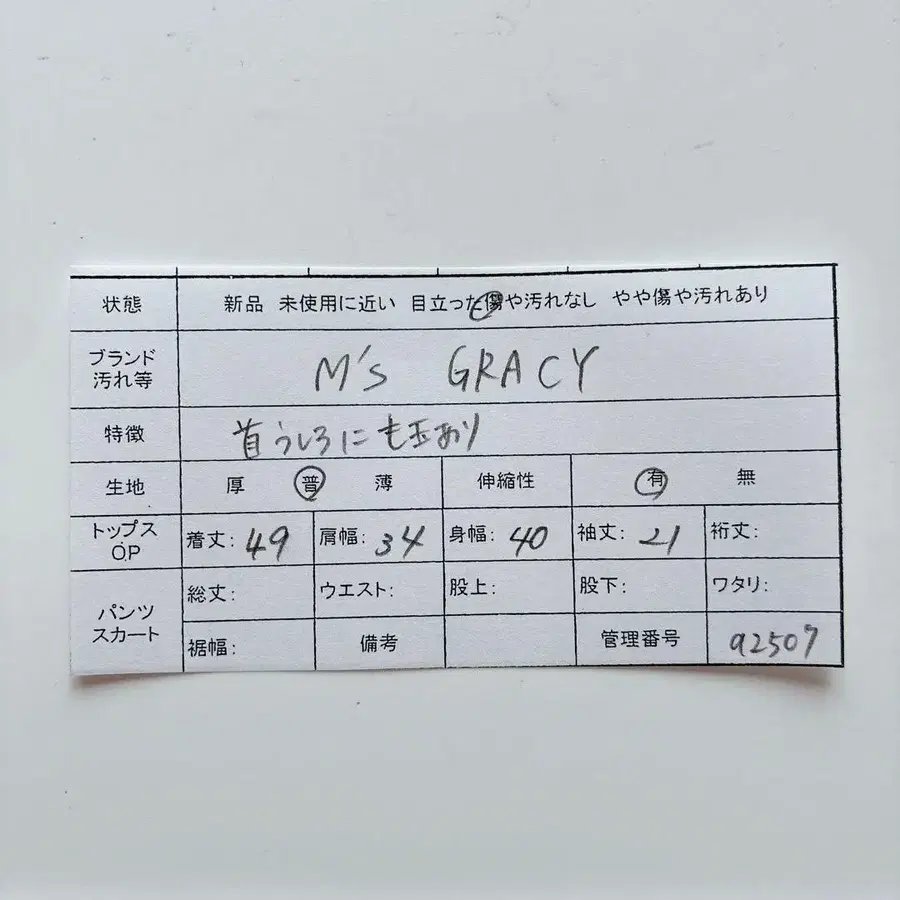 状態 新品 未使用に近い 目立った傷や汚れなし やや傷や汚れあり
ブランド
汚れ等
M's GRACY
特徴 首うしろにも玉あり
生地 厚 普 薄 伸縮性 有 無
トップス
OP
着丈: 49 肩幅: 34 身幅: 40 袖丈: 21 裄丈:
パンツ
スカート
総丈: ウエスト: 股上: 股下: ワタリ:
裾幅: 備考 管理番号 a2507